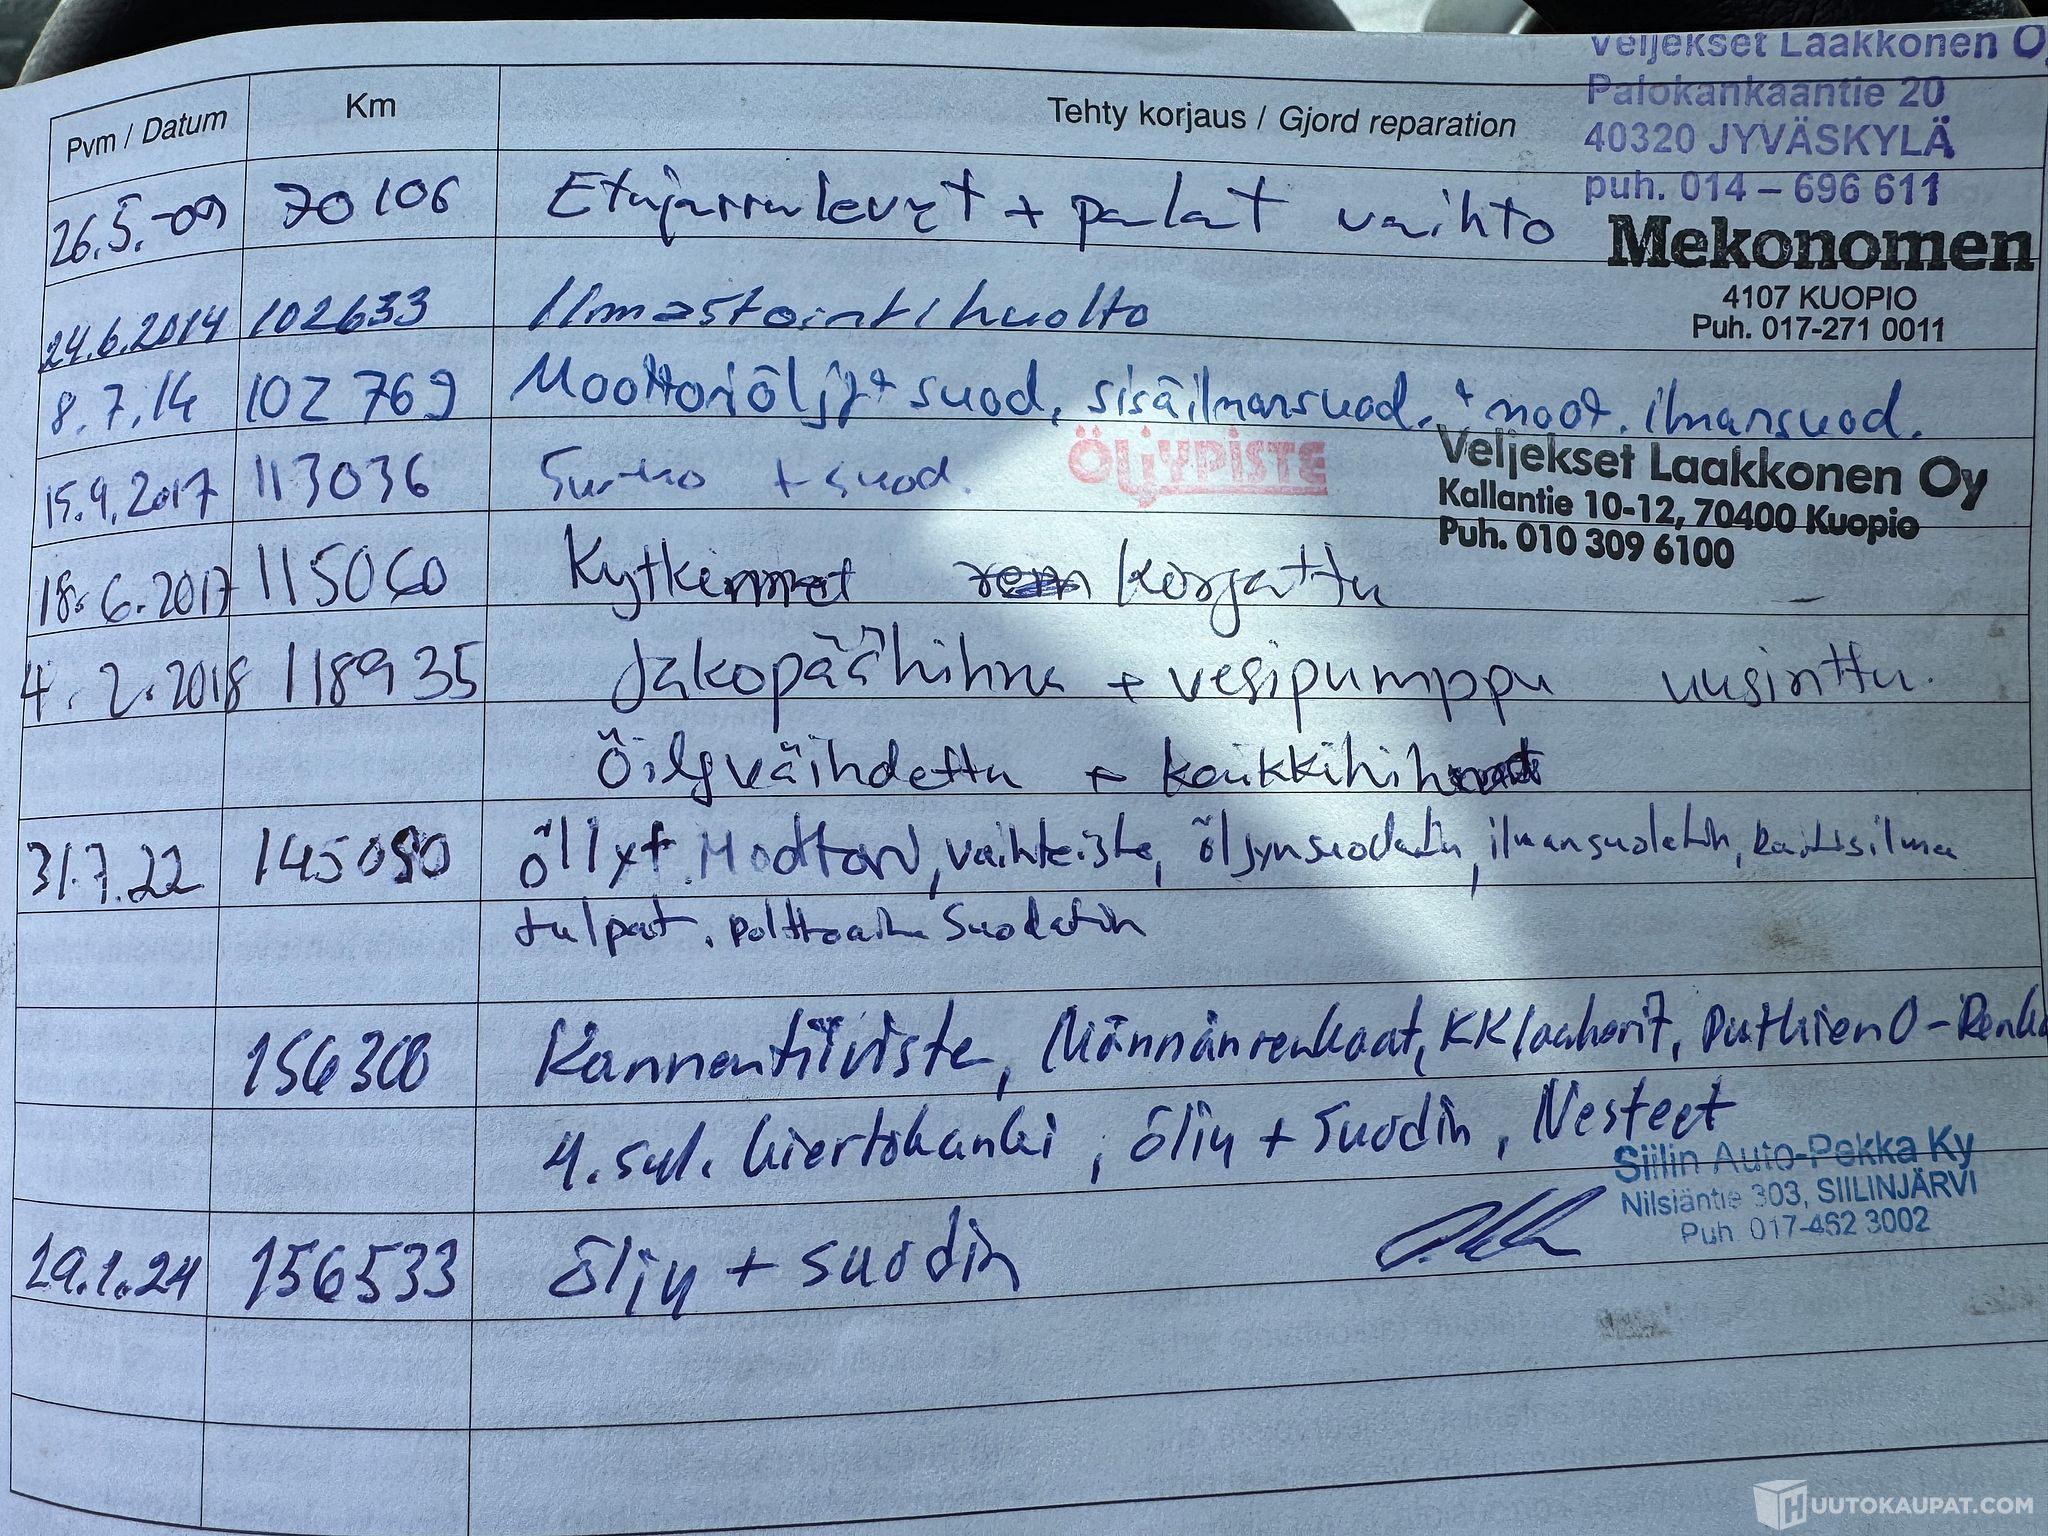 Veljekset Laakkonen Oy
Palokankaantie 20
40320 JYVÄSKYLÄ
puh. 014 – 696 611
Pvm / Datum Km Tehty korjaus / Gjord reparation
26.5.-09 70106 Etujarrulevyt + palat vaihto
Mekonomen
4107 KUOPIO
Puh. 017-271 0011
24.6.2014 102633 Ilmastointihuolto
8.7.14 102769 Moottoriöljy + suod. sisäilmansuod. + moot. ilmansuod.
Veljekset Laakkonen Oy
Kallantie 10-12, 70400 Kuopio
Puh. 010 309 6100
15.9.2017 113036 + suod. ÖLJYPISTE
18.6.2017 115060 Kytkimet korjattu
4.2.2018 118935 Jakopäähihna + vesipumppu uusinttu.
Öilyväihdettu + kaikkihihnat
31.7.22 145090 öllyt Moottori, vaihteisto, öljynsuodatin, ilmansuodatin, raitisilma
tulpat, polttoaine suodatin
156300 Kannentiiviste, Männänrenkaat, KK laakerit, Putkien O-Renka
4. syl. kiertokanki, öljy + suodin, Nesteet
Siilin Auto-Pekka Ky
Nilsiäntie 303, SIILINJÄRVI
Puh. 017-462 3002
19.1.24 156533 öljy + suodin
HUUTOKAUPAT.COM